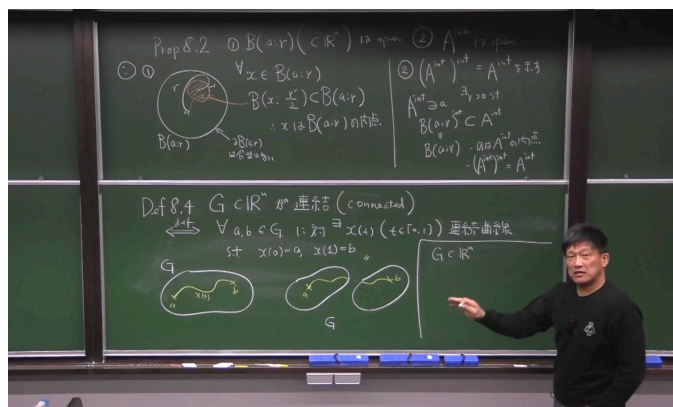 Prop 8.2 ① B(a:r) (⊂ ℝⁿ) は open ② A^int は open
∵ ①
r
a
B(a:r)
∂B(a:r)
∀x ∈ B(a:r)
B(x: r'/2) ⊂ B(a:r)
∴ x は B(a:r) の内点
② (A^int)^int = A^int を示す
A^int ∋ a ∃r>0 st
B(a:r)^int ⊂ A^int
B(a:r) ∴ a は A^int の内点
∴ (A^int)^int = A^int
Def 8.4 G ⊂ ℝⁿ が 連結 (connected)
⟺def ∀a,b ∈ G に対 ∃x(t) (t∈[0,1]) 連続曲線
st x(0)=a, x(1)=b 〃
G
a x(t) b
a b
G
G ⊂ ℝⁿ